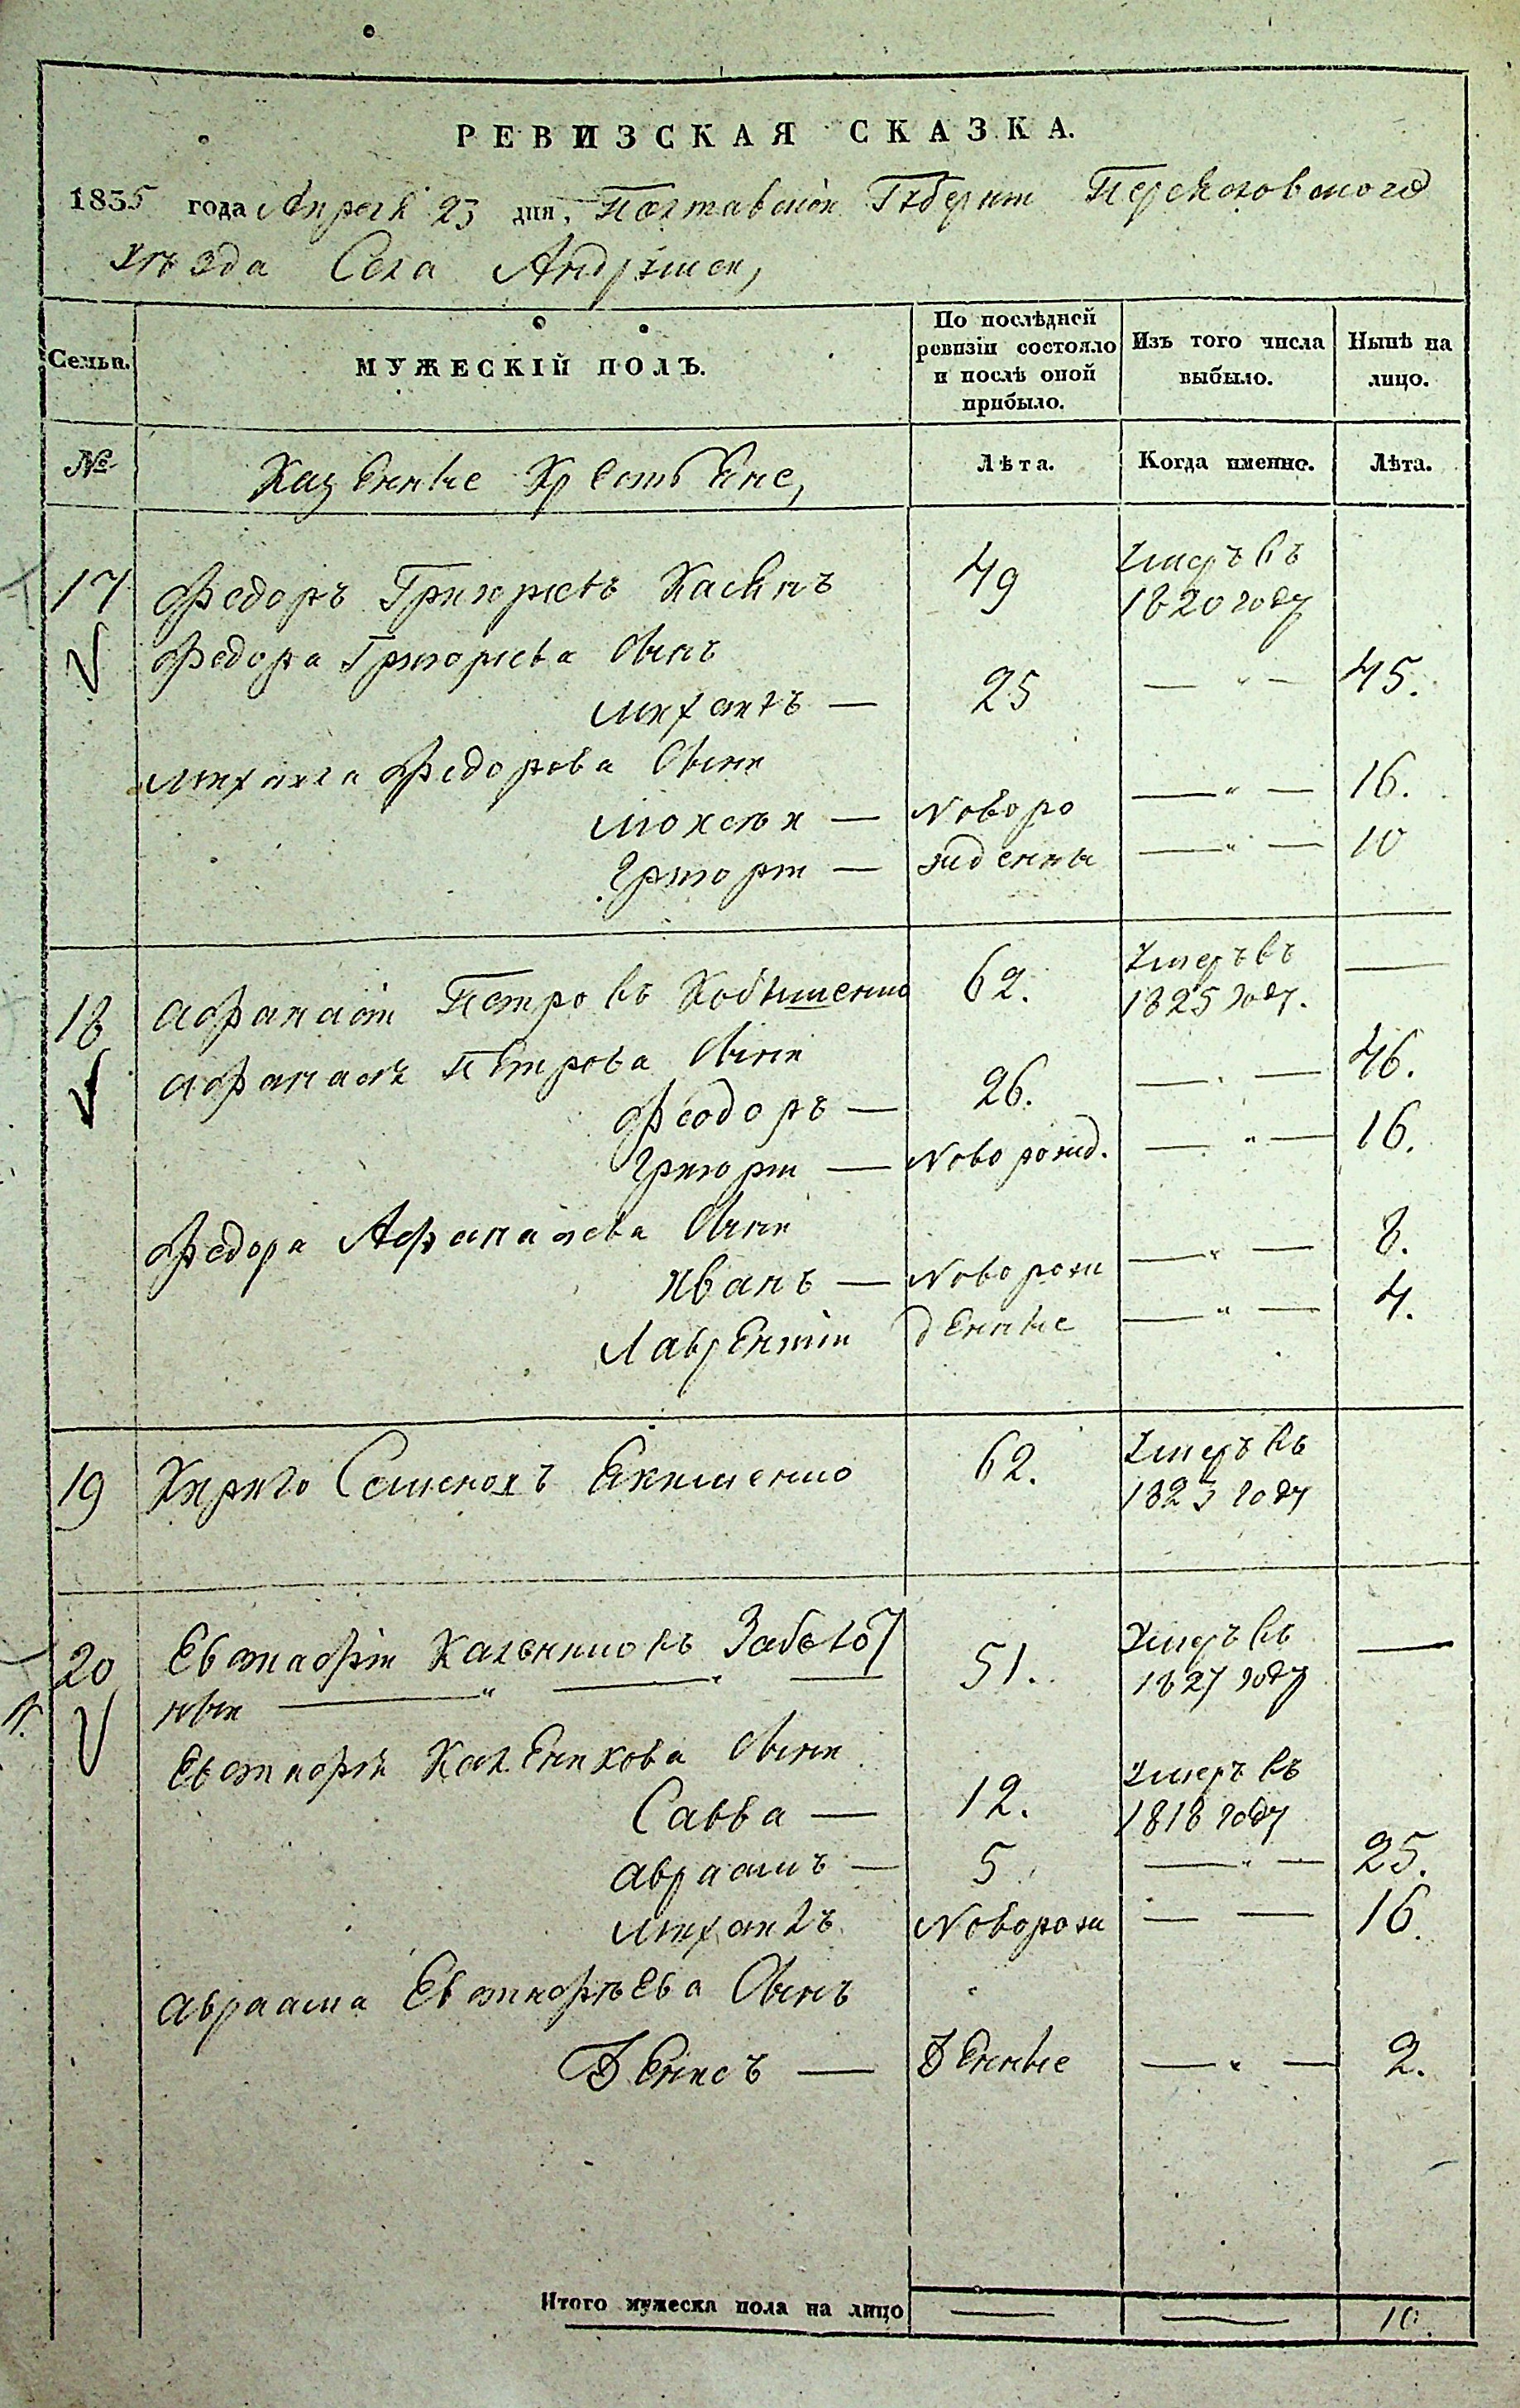 РЕВИЗСКАЯ СКАЗКА.
1835 года Апреля 23 дня, Полтавской Губернии
уѣзда Села
Семьи. МУЖЕСКІЙ ПОЛЪ. По послѣдней ревизіи состояло и послѣ оной прибыло. Изъ того числа выбыло. Нынѣ на лицо.
№ Казенные Крестьяне, Лѣта. Когда именно. Лѣта.
17 Федоръ Григорьевъ 49 умеръ въ 1820 году
Федора Григорьева Сынъ
Михаилъ — 25 — „ — 45.
Михаила Федорова Сыни
Моисей — Новоро — „ — 16.
Григорий — жденны — „ — 10
18 Афанасий Петровъ 62. умеръ въ 1825 году. —
Афанасія Петрова Сыни
Феодоръ — 26. — „ — 46.
Григорий — Новорожд. — „ — 16.
Федора Афанасьева Сыни
Иванъ — Оворож — „ — 8.
Лаврентий денные — „ — 4.
19 Кирило Семеновъ Якименко 62. умеръ въ 1823 году
20 Евстафій 51. умеръ въ 1827 году —
— „ — „ —
Евстафія Каленикова Сыни
Савва — 12. умеръ въ 1818 году
Авраамъ — 5 — „ — 25.
Михаилъ Оворож — — 16
Авраама Евстафьева Сынъ
Денисъ — Денные — „ — 2.
Итого мужеска пола на лицо — — 10.